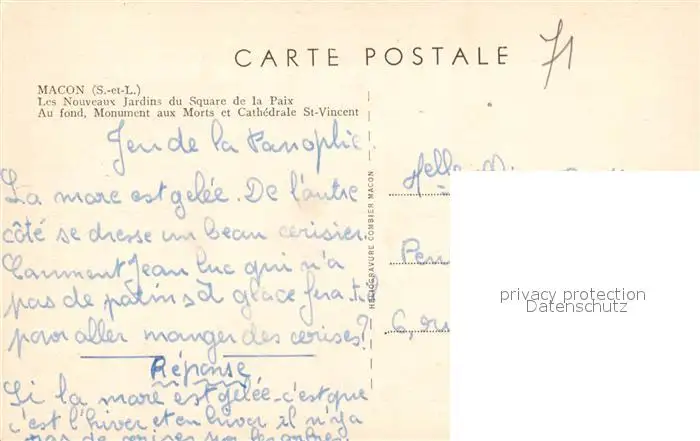 71
CARTE POSTALE
MACON (S.-et-L.)
Les Nouveaux Jardins du Square de la Paix
Au fond, Monument aux Morts et Cathédrale St-Vincent
Jeu de la Panoplie
La mare est gelée. De l'autre
côté se dresse un beau cerisier.
Comment Jean Luc qui n'a
pas de patins à glace fera t-il
pour aller manger des cerises?
Réponse
Si la mare est gelée - c'est que
c'est l'hiver et en hiver il n'y a
pas de cerises sur les arbres.
HELIOGRAVURE COMBIER MACON
Melle
Pen
6, ru
privacy protection
Datenschutz